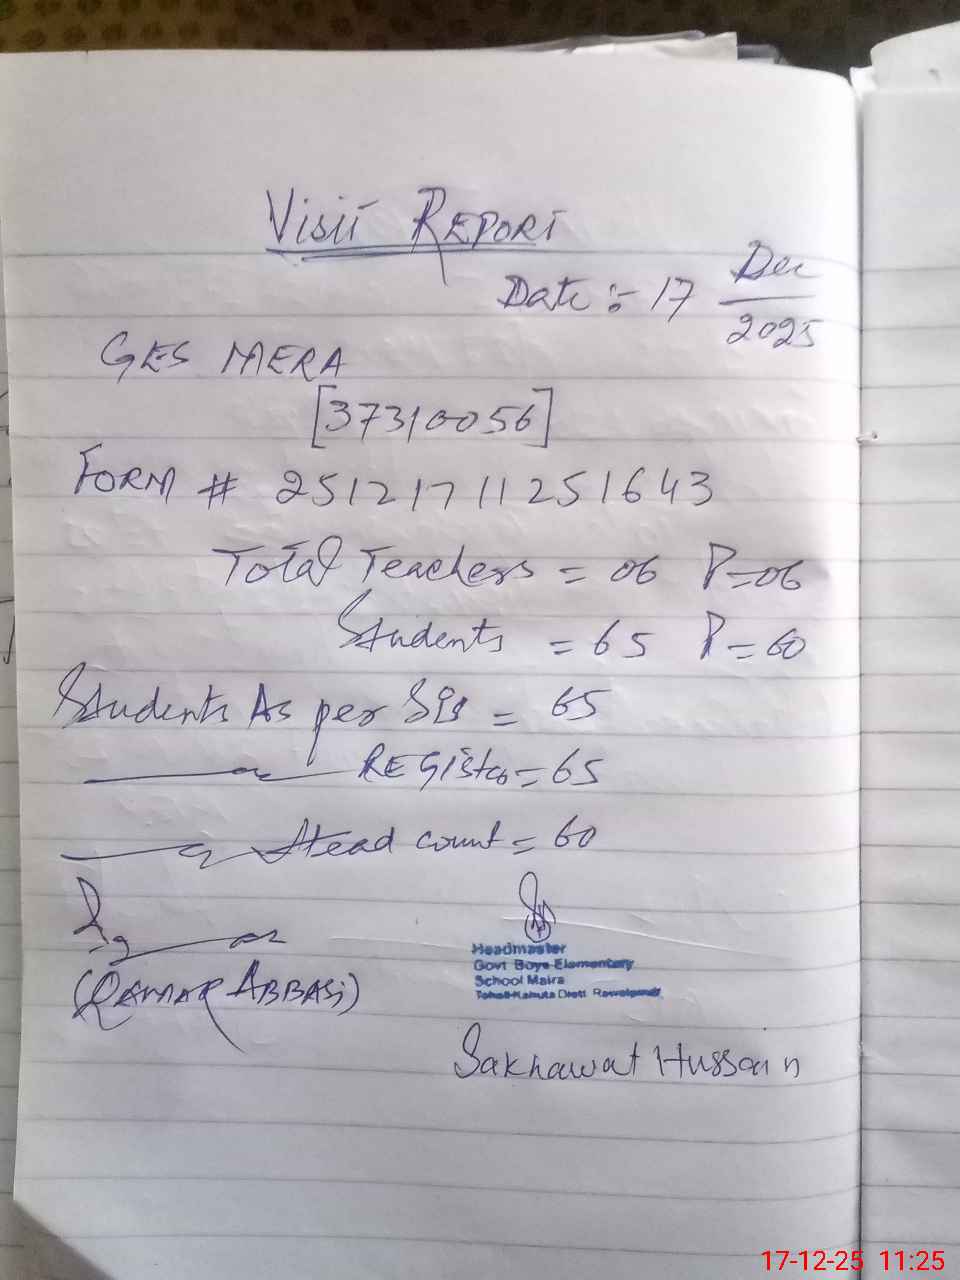 Visit REPORT
Date :- 17 Dec
2025
GES MERA
[37310056]
FORM # 25121711251643
Total Teachers = 06 P=06
Students = 65 P=60
Students As per SIS = 65
REGister = 65
Head count = 60
(QAMAR ABBASi)
Headmaster
Govt Boys Elementary
School Maira
Tehsil Kahuta Distt Rawalpindi
Sakhawat Hussain
17-12-25 11:25